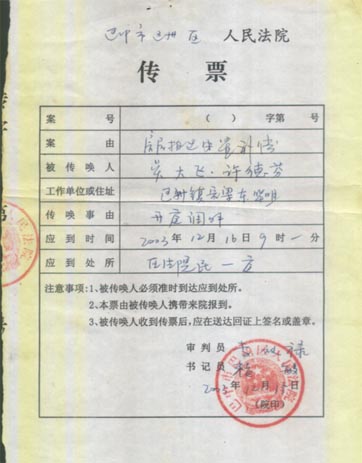 巴中市巴州区 人民法院
传票
案号 ( ) 字第 号
案由 房屋拆迁安置补偿
被传唤人 吴大飞·许德芬
工作单位或住址 巴州镇
传唤事由 开庭调解
应到时间 2003年12月16日9时一分
应到处所 区法院民一方
注意事项:1、被传唤人必须准时到达应到处所。
2、本票由被传唤人携带来院报到。
3、被传唤人收到传票后,应在送达回证上签名或盖章。
审判员
书记员
2003年12月15日
(院印)